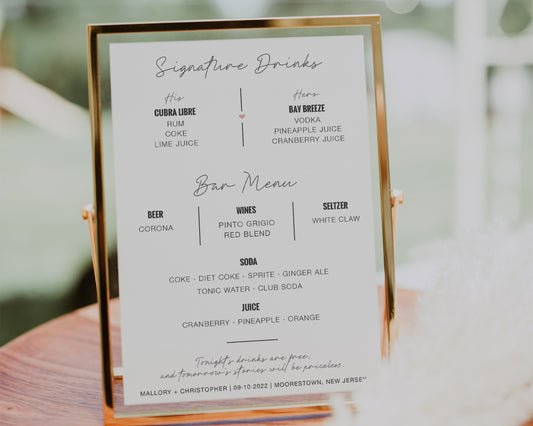 Signature Drinks
His
CUBRA LIBRE
RUM
COKE
LIME JUICE
Hers
BAY BREEZE
VODKA
PINEAPPLE JUICE
CRANBERRY JUICE
Bar Menu
BEER
CORONA
WINES
PINTO GRIGIO
RED BLEND
SELTZER
WHITE CLAW
SODA
COKE · DIET COKE · SPRITE · GINGER ALE
TONIC WATER · CLUB SODA
JUICE
CRANBERRY · PINEAPPLE · ORANGE
Tonight's drinks are free,
and tomorrow's stories will be priceless.
MALLORY + CHRISTOPHER | 09-10-2022 | MOORESTOWN, NEW JERSEY